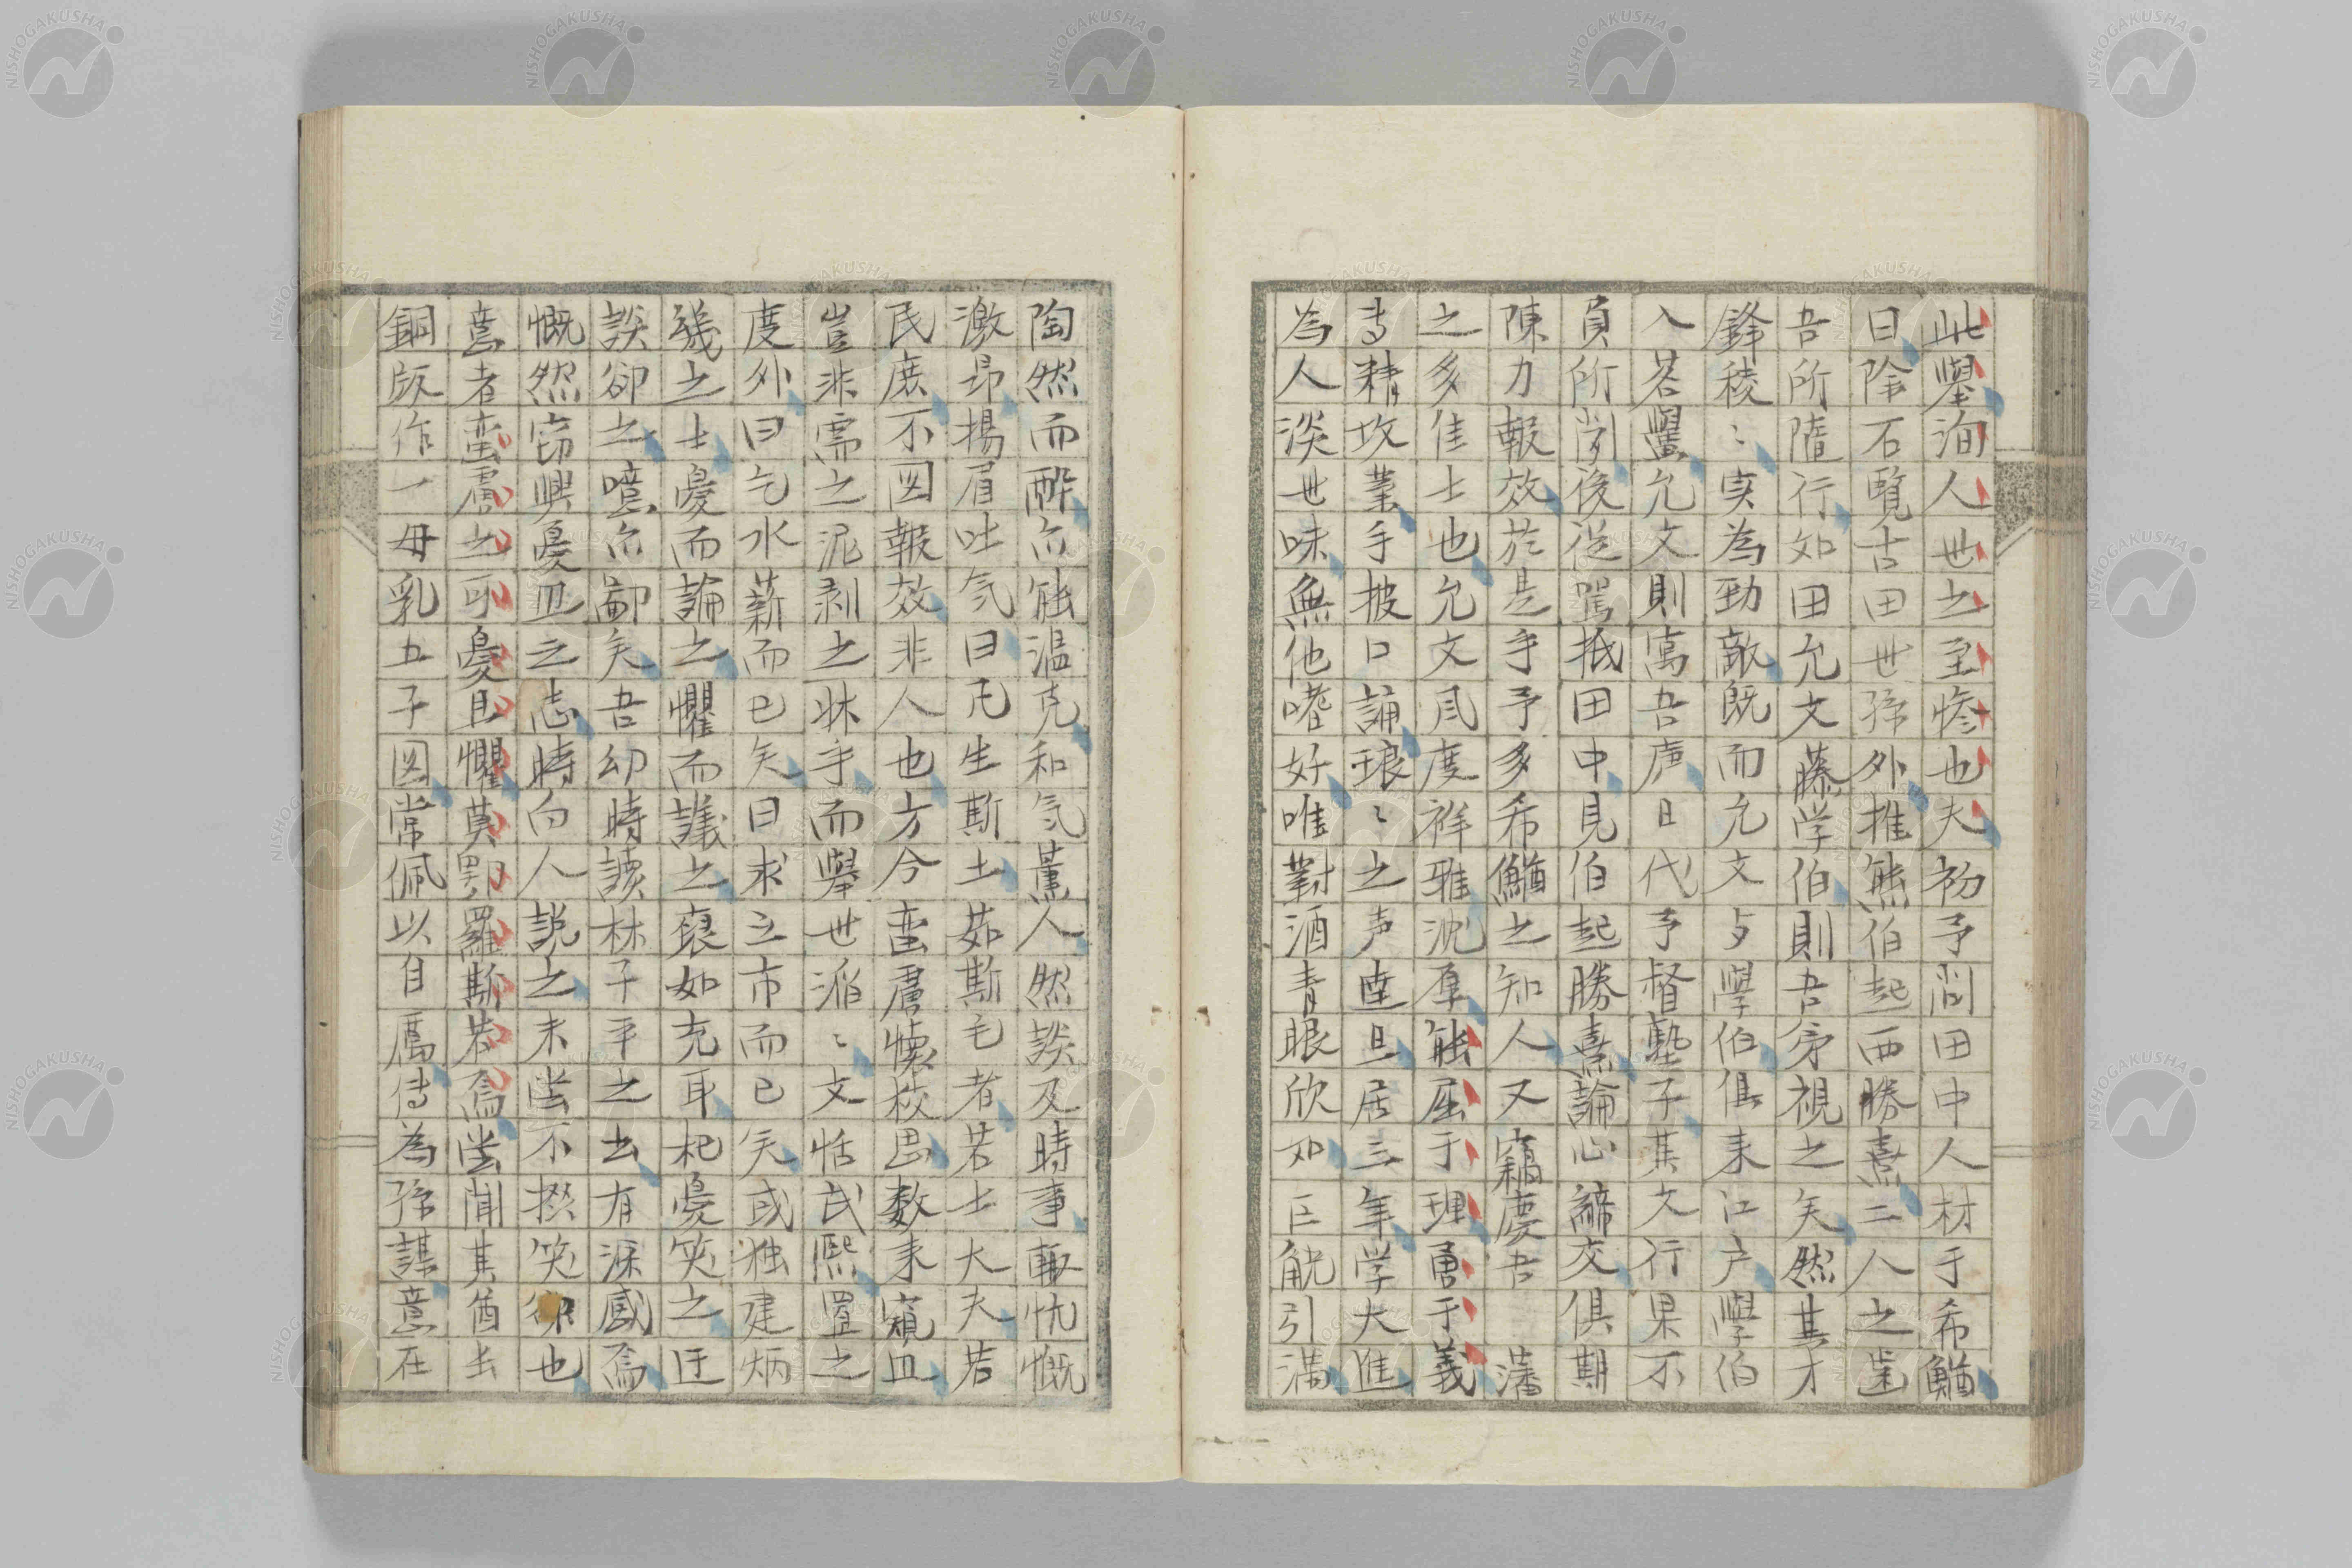 此擧洵人世之至惨也夫初予問田中人材于希鰌
曰除石覧古田世孫外推熊伯起西勝熹二人之歯
吾所随行如田允文藤学伯則吾旁視之矣然其才
鋒稜〻実為勁敵既而允文与學伯俱来江戸學伯
入茗黌允文則寓吾廬日代予督塾子其文行果不
負所聞後從駕抵田中見伯起勝熹論心締交俱期
陳力報效於是乎予多希鰌之知人又竊慶吾 藩
之多佳士也允文風度祥雅沈厚能屈于理勇于義
専精攻業手披口誦琅〻之声達旦居三年学大進
為人淡世味無他嗜好唯對酒青眼欣如巨觥引満
陶然而酔亦能温克和気薫人然談及時事輒忼慨
激昂揚眉吐気曰凡生斯土茹斯毛者若士大夫若
民庶不図報效非人也方今蛮虜懐桀邑数来窺皿
豈非需之泥剥之牀乎而擧世滔〻文恬武熙置之
度外曰乞水薪而已矣曰求立市而已矣或独建炳
幾之士憂而論之懼而議之襃如充耳杞憂笑之迂
談卻之噫亦鄙矣吾幼時讀林子平之書有深感焉
慨然窃興憂皿之志時向人説之未嘗不揆笑彿也
意者蛮虜之可憂且懼莫鄂羅斯若焉嘗聞其酋長
銅版作一母乳五子図常佩以自厲傳為孫謀意在